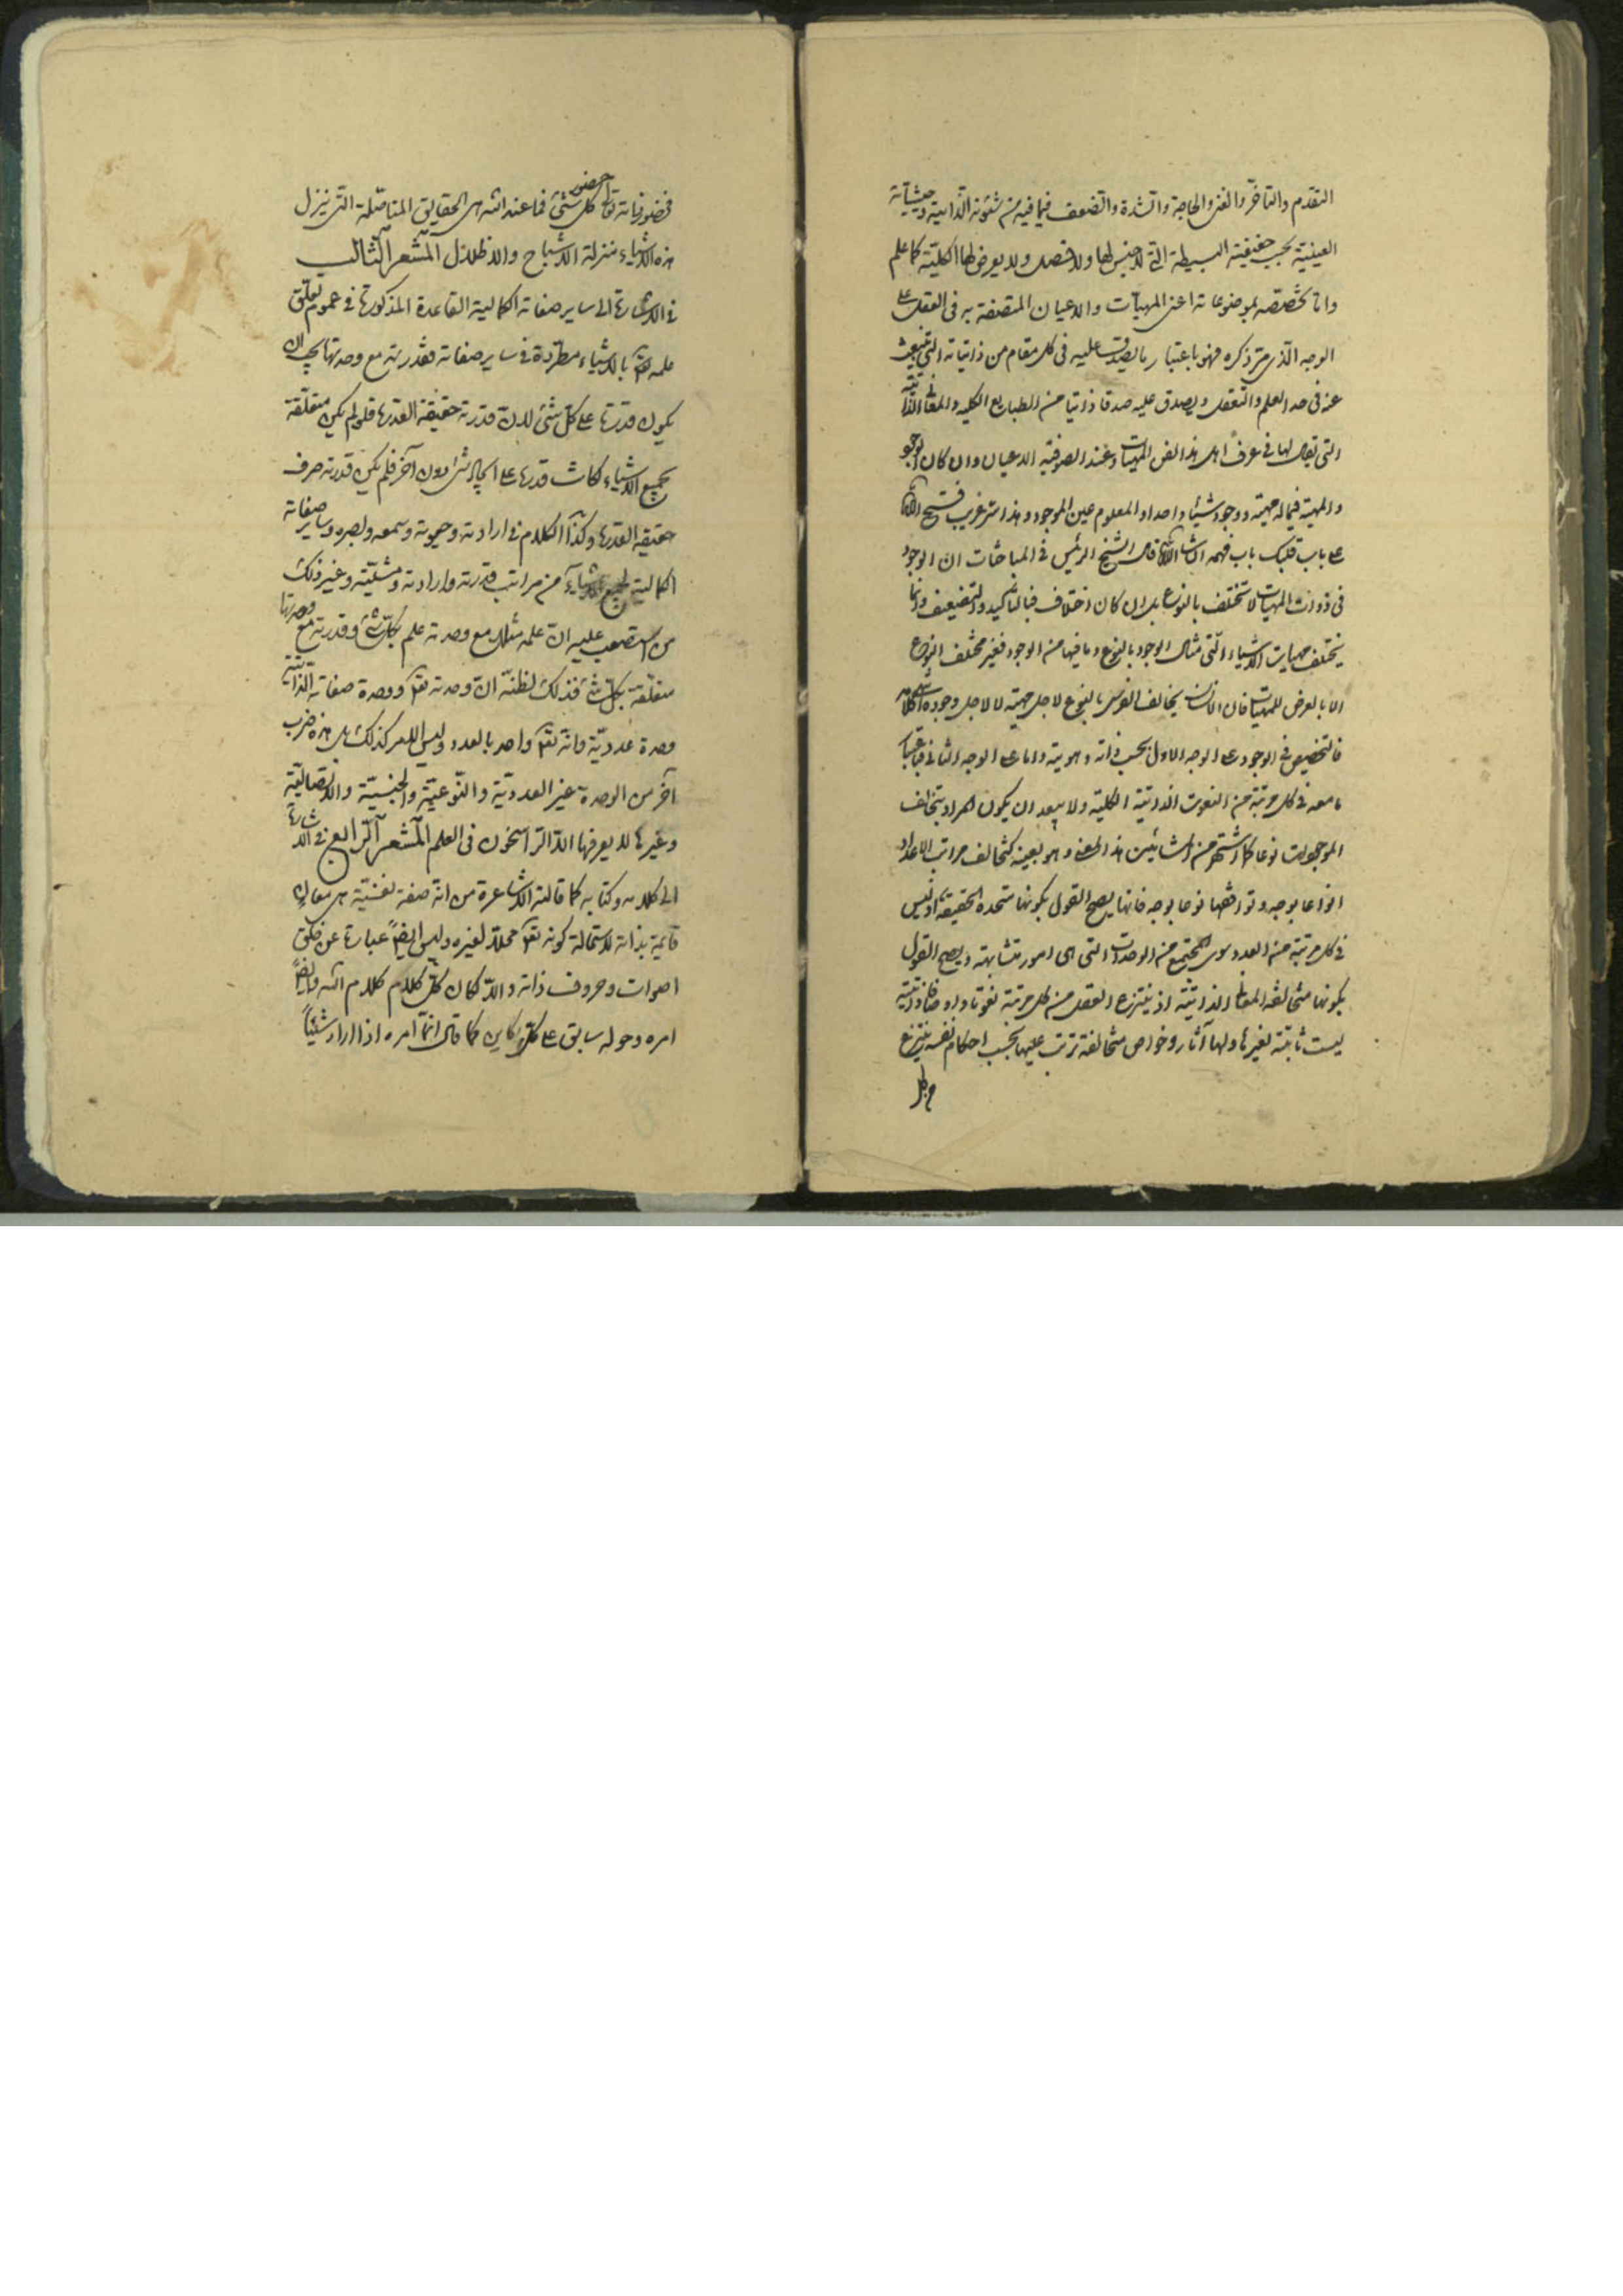 التقدم والتاخر والغنى والحاجة والشدة والضعف فبما فيه من شئونه الذاتية وحيثياته
العينية بحسب حقيقته البسيطة التى لا جنس لها ولا فصل ولا يعرض لها الكلية كما علم
واما تخصصه بموضوعاته اعنى المهيات والاعيان المتصفة به فى العقل على
الوجه الذى مر ذكره فهو باعتبار ما يصدق عليه فى كل مقام من ذاتياته التى تنبعث
عنه فى حد العلم والتعقل ويصدق عليه صدقا ذاتيا من الطبايع الكليه والمعانى الذاتية
التى يقال لها فى عرف اهل هذا الفن المهيات وعند الصوفيه الاعيان وان كان الوجود
والمهية فيما له مهية ووجود شيئا واحدا والمعلوم عين الموجود وهذا سر غريب فتح الله
على باب قلبك باب فهمه انشاء الله قال الشيخ الرئيس فى المباحثات ان الوجود
فى ذوات المهيات لا تختلف بالنوع بل ان كان اختلاف فبالتاكيد والتضعيف وانما
يختلف مهيات الاشياء التى تنال الوجود بالنوع وما فيها من الوجود فغير مختلف النوع
الا بالعرض للمهيات فان الانسان يخالف الفرس بالنوع لاجل مهيته لا لاجل وجوده كلامه
فالتخصيص فى الوجود على الوجه الاول بحسب ذاته وهويته واما على الوجه الثانى فباعتبار
ما معه فى كل مرتبة من النعوت الذاتية الكلية ولا يبعد ان يكون المراد بتخالف
الموجودات نوعا كما اشتهر من المشائين هذا المعنى وهو بعينه كتخالف مراتب الاعداد
انواعا بوجه وتوافقها نوعا بوجه فانها يصح القول بكونها متحده الحقيقة اذ ليس
فى كل مرتبة من العدد سوى المجتمع من الوحدات التى هى امور متشابهة ويصح القول
بكونها متخالفه المعانى الذاتية اذ ينتزع العقل من كل مرتبة نعوتا واوصافا ذاتية
ليست ثابتة لغيرها ولها آثار وخواص متخالفة ترتب عليها بحسب احكام نفسه ينتزع
من كل
فحضور ذاته تعالى حضور كل شئ فما عند الله هى الحقايق المتاصلة التى ينزل
هذه الاشياء منزلة الاشباح والاظلال المشعر الثالث
فى الاشارة الى ساير صفاته الكمالية القاعدة المذكورة فى عموم تعلق
علمه تعالى بالاشياء مطردة فى ساير صفاته فقدرته مع وحدتها يجب ان
يكون قدرة على كل شئ لان قدرته حقيقة القدرة فلو لم يكن متعلقة
بجميع الاشياء لكانت قدرة على ايجاد شئ دون آخر فلم يكن قدرته صرف
حقيقة القدرة وكذا الكلام فى ارادته وحيوته وسمعه وبصره وساير صفاته
الكمالية لجميع الاشياء من مراتب قدرته وارادته ومشيته وغير ذلك
من استصعب عليه ان علمه مثلا مع وحدته علم بكل شئ وقدرته مع وحدتها
متعلقة بكل شئ فذلك لظنه ان وحدته تعالى ووحدة صفاته الذاتية
وحدة عددية وانه تعالى واحد بالعدد وليس الامر كذلك بل هذه ضرب
آخر من الوحدة غير العددية والنوعية والجنسية والاتصالية
وغيرها لا يعرفها الا الراسخون فى العلم المشعر الرابع فى الاشارة
الى كلامه وكتابه كما قالته الاشاعرة من انه صفة نفسية هى معان
قائمة بذاته لاستحالة كونه تعالى محلا لغيره وليس ايضا عبارة عن خلق
اصوات وحروف ذاته والا لكان كل كلام كلام الله وايضا
امره وقوله سابق على كل كاين كما قال انما امره اذا اراد شيئا